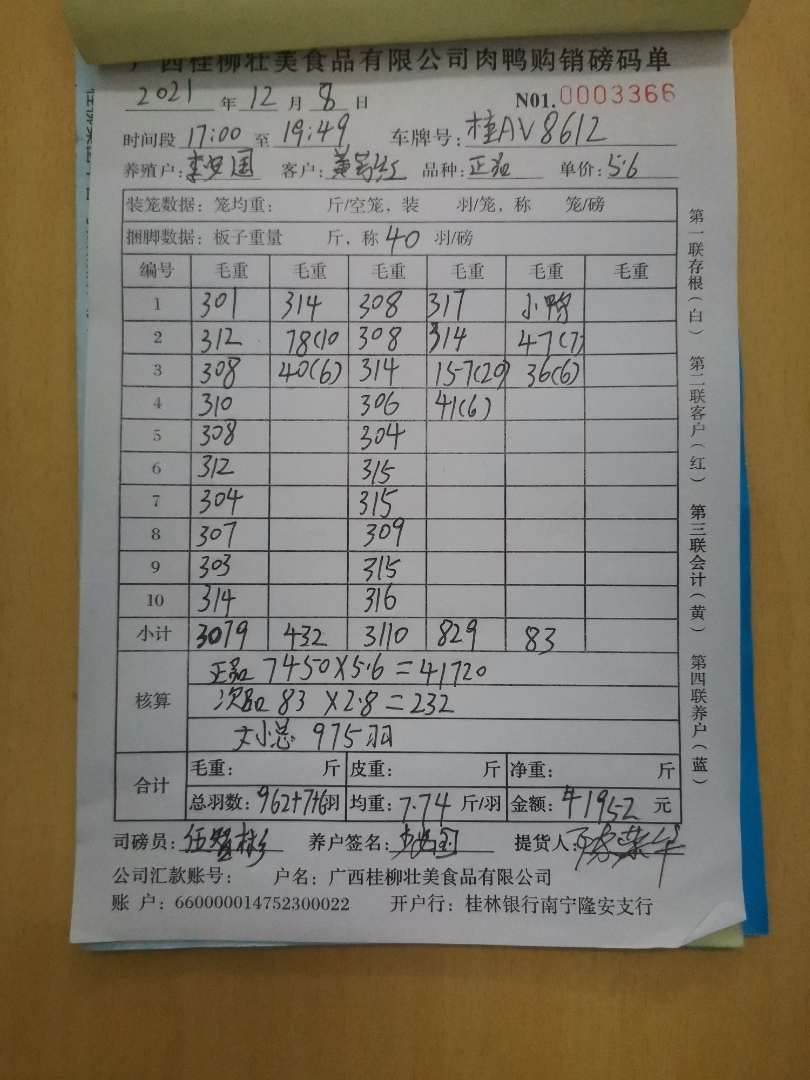 广西桂柳壮美食品有限公司肉鸭购销磅码单
2021 年 12 月 8 日 N01.0003366
时间段 17:00 至 19:49 车牌号: 桂AV8612
养殖户: 李安国 客户: 品种: 正品 单价: 5.6
装笼数据: 笼均重: 斤/空笼, 装 羽/笼, 称 笼/磅
捆脚数据: 板子重量 斤, 称 40 羽/磅
编号 毛重 毛重 毛重 毛重 毛重 毛重
1 301 314 308 317 小鸭
2 312 78(10 308 314 47(7)
3 308 40(6) 314 157(20) 36(6)
4 310 306 41(6)
5 308 304
6 312 315
7 304 315
8 307 309
9 303 315
10 314 316
小计 3079 432 3110 829 83
核算
正品 7450×5.6=41720
次品 83×2.8=232
大小总 975羽
合计
毛重: 斤 皮重: 斤 净重: 斤
总羽数: 962+7+6羽 均重: 7.74 斤/羽 金额: 41952 元
司磅员: 养户签名: 提货人:
公司汇款账号: 户名: 广西桂柳壮美食品有限公司
账 户: 660000014752300022 开户行: 桂林银行南宁隆安支行
第一联存根(白) 第二联客户(红) 第三联会计(黄) 第四联养户(蓝)